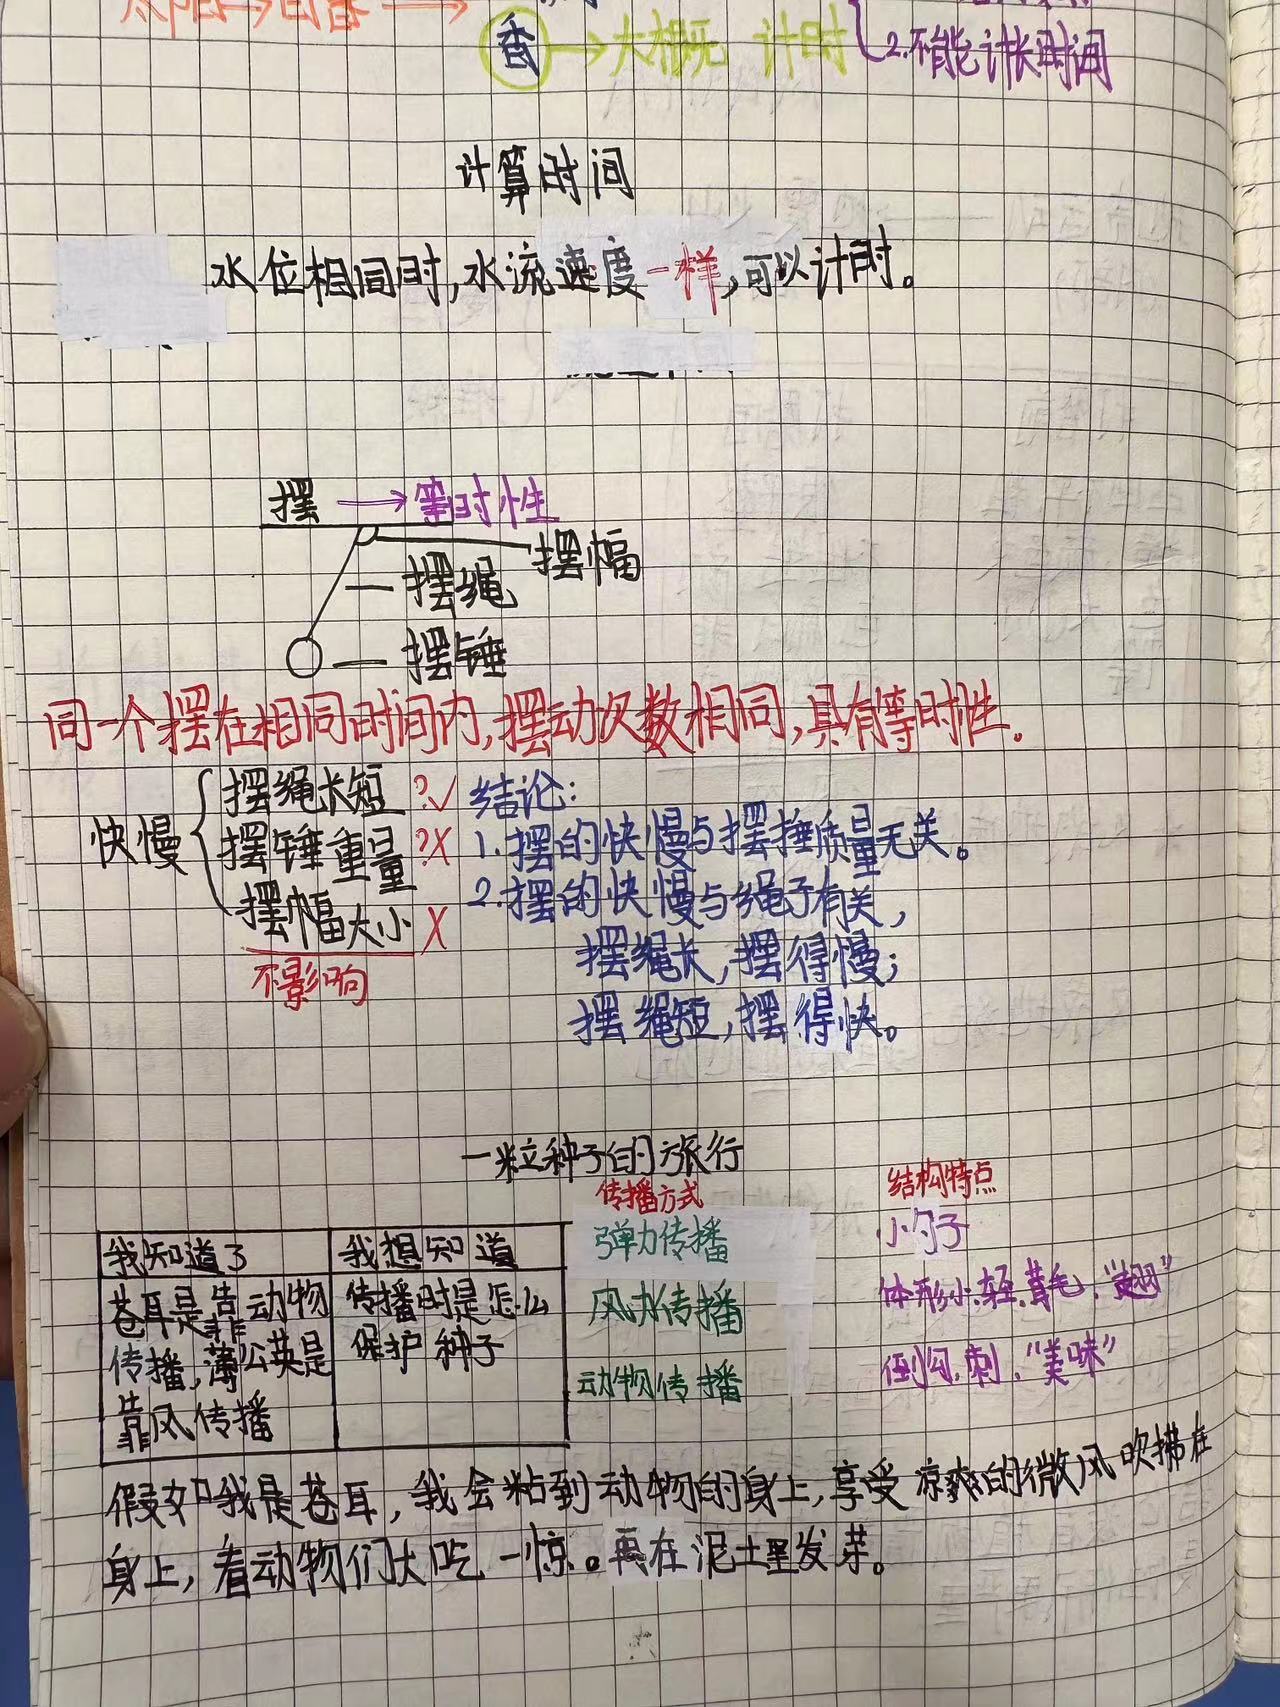 太阳→日晷→
香→大概 计时
2.不能计长时间
计算时间
水位相同时,水流速度一样,可以计时。
摆→等时性
摆幅
摆绳
摆锤
同一个摆在相同时间内,摆动次数相同,具有等时性。
快慢
摆绳长短 ?✓
摆锤重量 ?X
摆幅大小 X
不影响
结论:
1.摆的快慢与摆捶质量无关。
2.摆的快慢与绳子有关,
摆绳长,摆得慢;
摆绳短,摆得快。
一粒种子的旅行
传播方式 结构特点
我知道了 我想知道
苍耳是靠动物
传播,蒲公英是
靠风传播
传播时是怎么
保护种子
弹力传播 小勺子
风力传播 体形小、轻、茸毛、“翅”
动物传播 倒勾,刺,“美味”
假如我是苍耳,我会粘到动物的身上,享受凉爽的微风吹拂在
身上,看动物们大吃一惊。再在泥土里发芽。